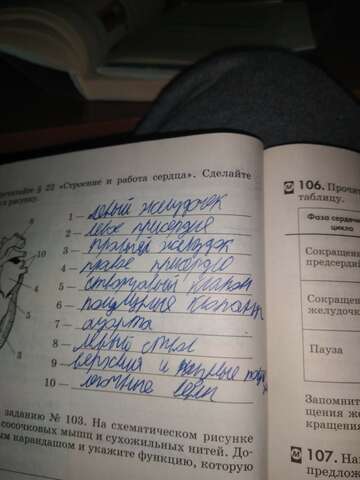 § 22 «Строение и работа сердца». Сделайте
рисунку.
8
10
4
3
5
1 – левый желудочек
2 – левое предсердие
3 – правый желудок
4 – правое
5 – створчатый клапан
6 – полулунные клапаны
7 – аорта
8 –
9 – верхняя и
10 – легочные вены
заданию № 103. На схематическом рисунке
сосочковых мышц и сухожильных нитей. До-
карандашом и укажите функцию, которую
106. Прочи
таблицу.
Фаза сердечн
цикла
Сокращен
предсерди
Сокращен
желудочк
Пауза
Запомнит
щения же
кращения
107. На
предлож